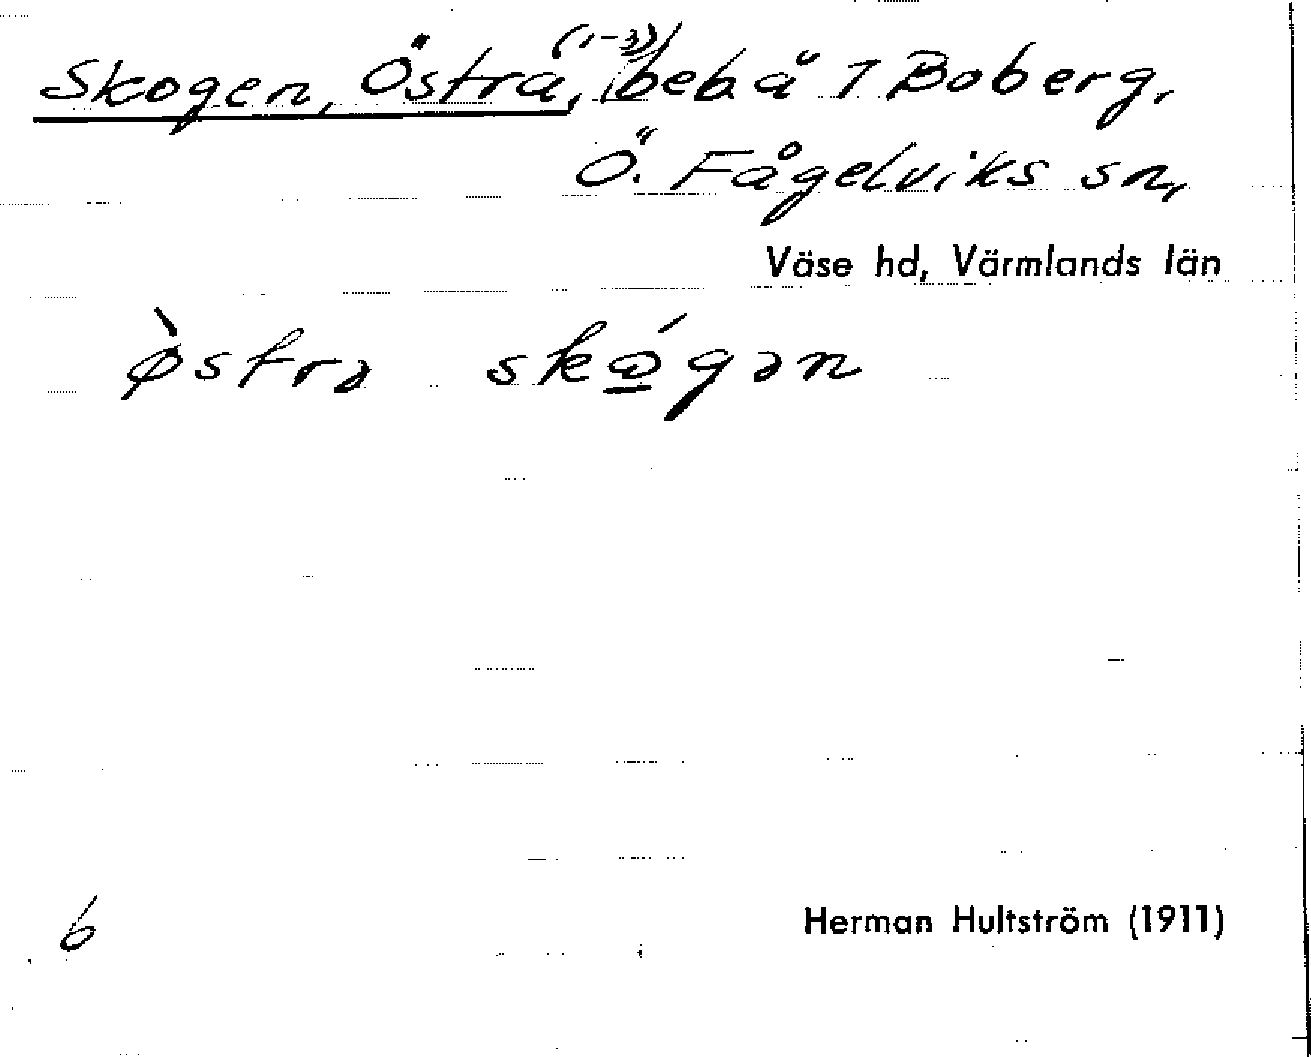 Skogen, Östra, (1-3) beb å 7 Boberg,
Ö. Fågelviks sn,
Väse hd, Värmlands län
ø̀strə skó̲gən
6
Herman Hultström (1911)